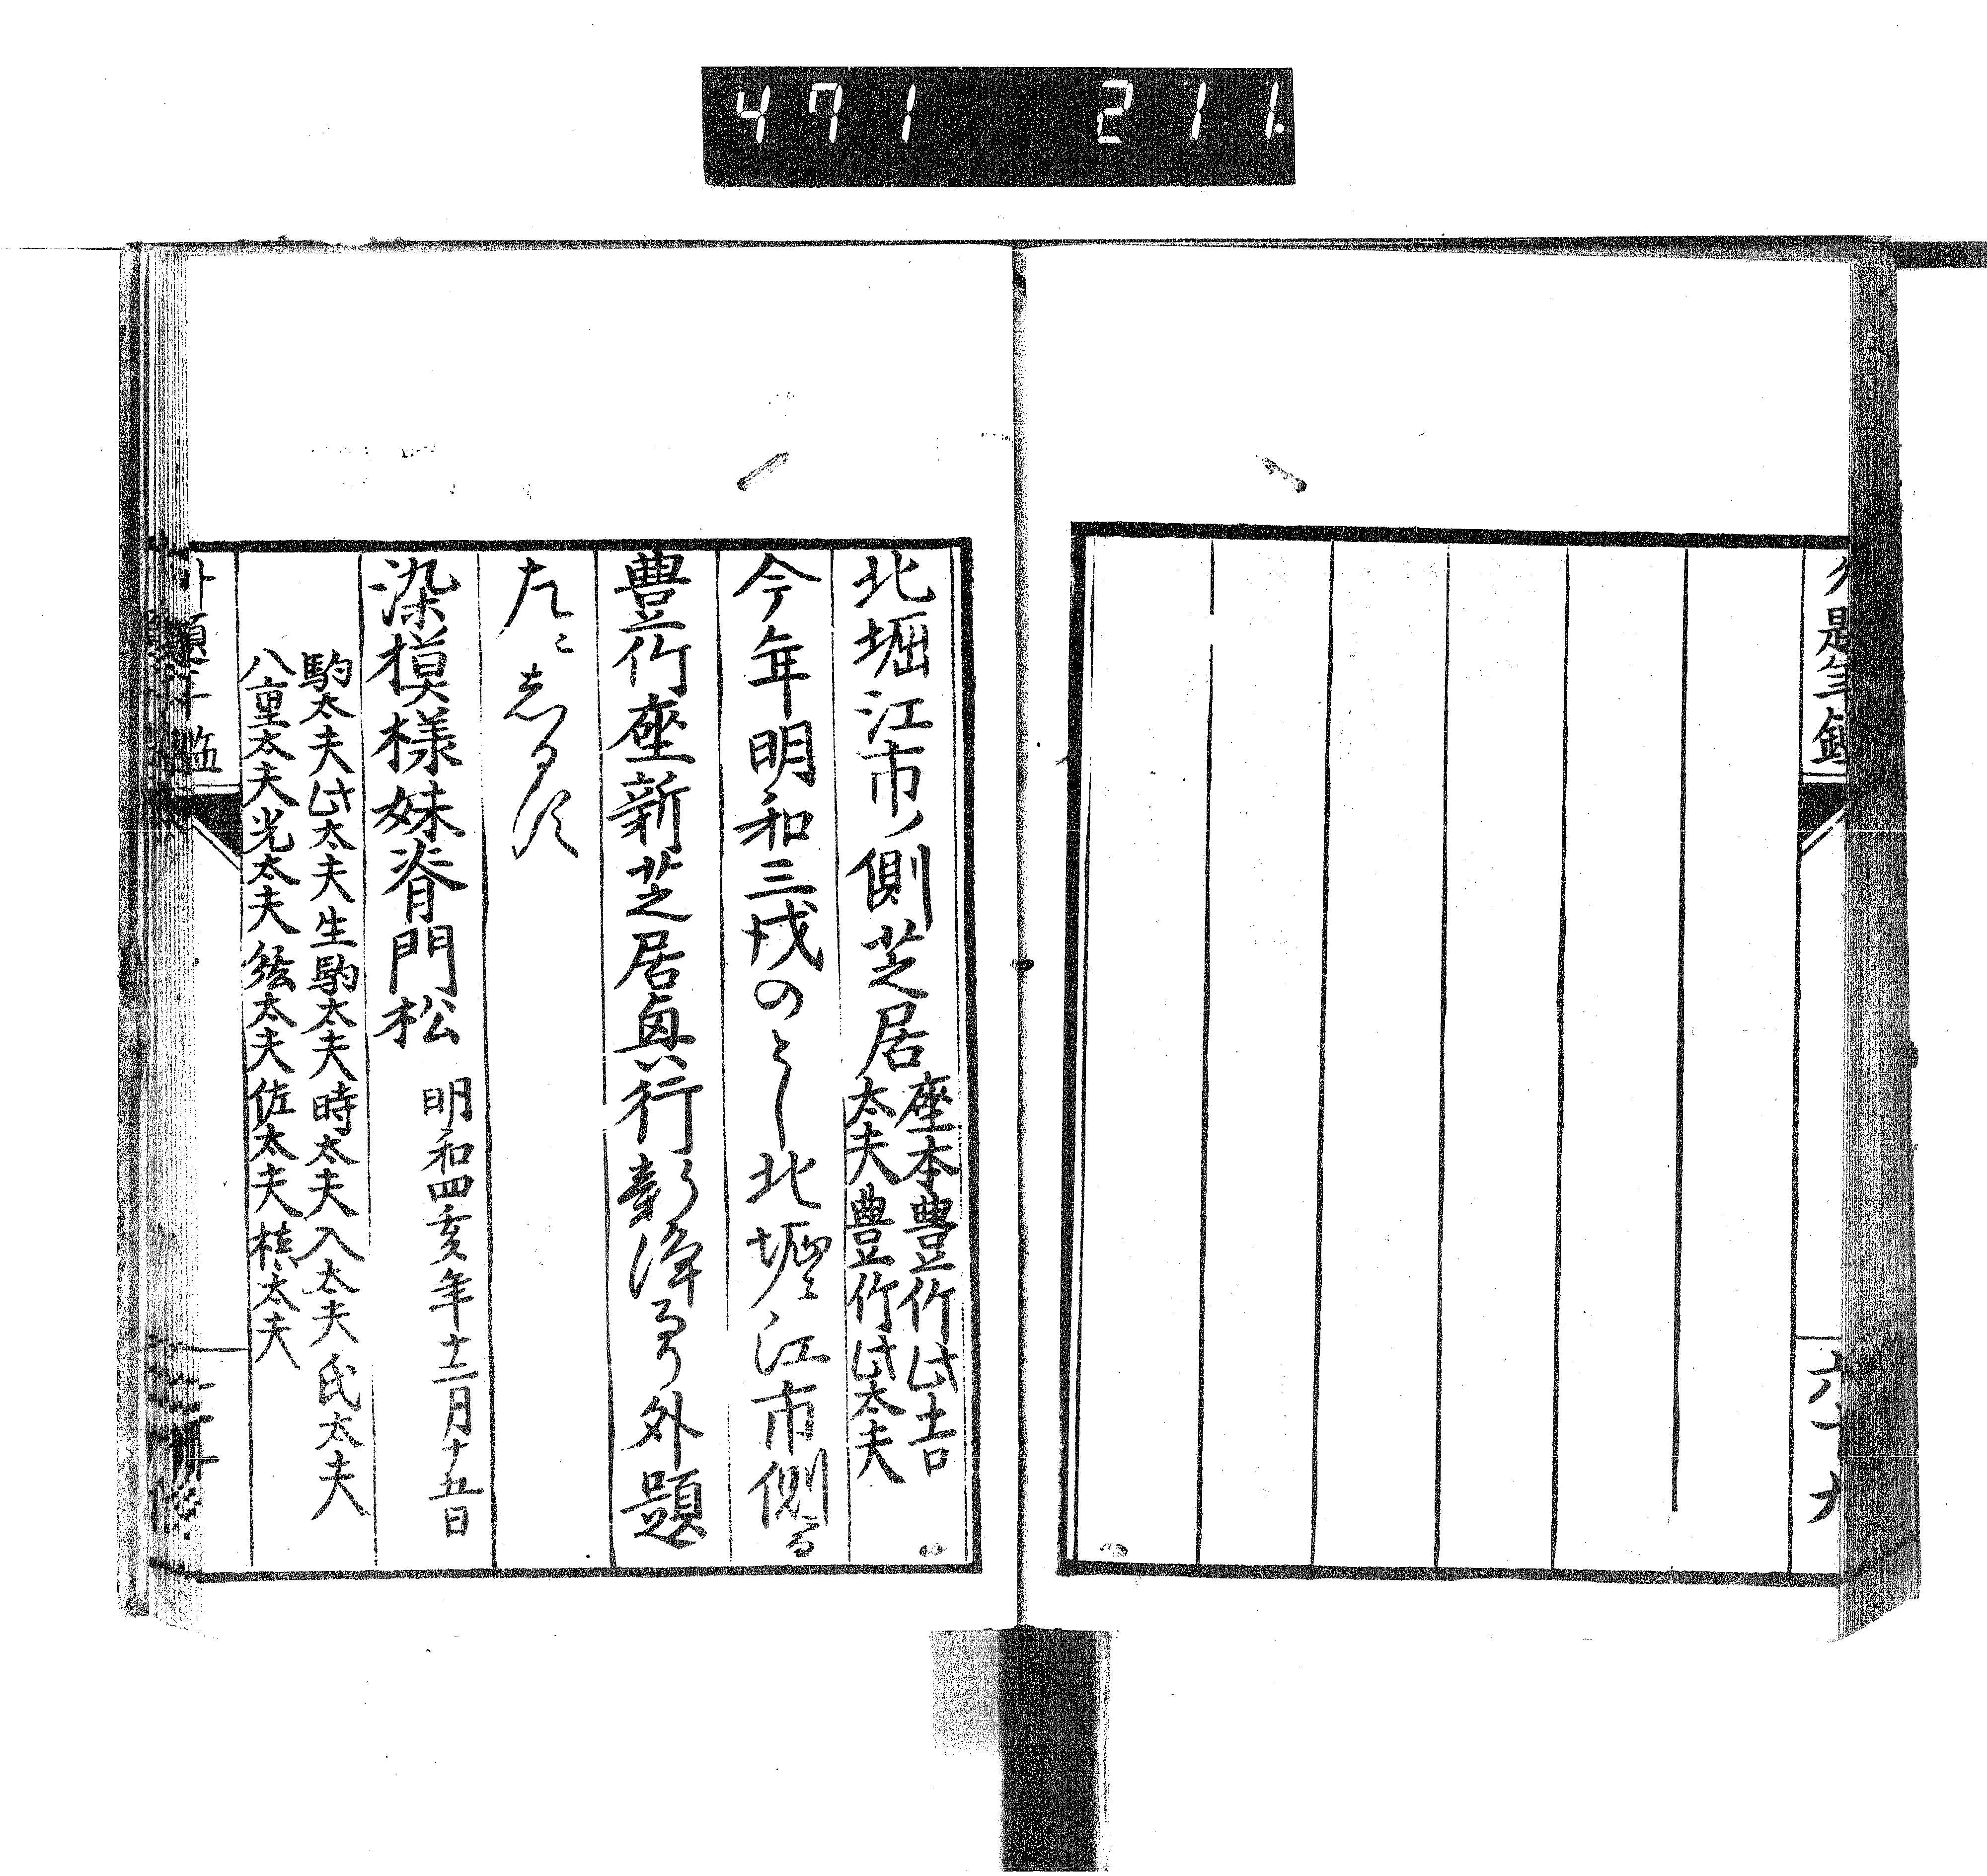 471 211.
六十九
北堀江市ノ側芝居
座本豊竹此吉
太夫豊竹此太夫
今年明和三戌のとし北堀江市側る
豊竹座新芝居興行新浄るり外題
左ニしるす
染模様妹脊門松 明和四亥年十二月十五日
駒太夫此太夫生駒太夫時太夫入太夫氏太夫
八重太夫光太夫絃太夫佐太夫桂太夫